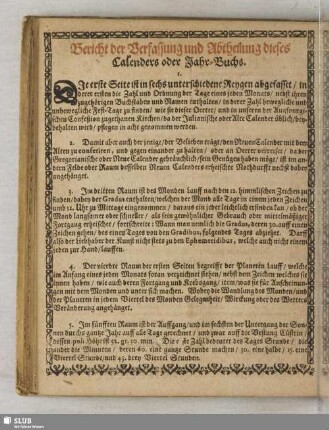 Bericht der Verfassung und Abtheilung dieses
Calenders oder Jahr-Buchs.
1.
DIe erste Seite ist in sechs unterschiedene Reygen abgefasset / in
deren ersten die Zahl und Ordnung der Tage eines jeden Monats / nebst ihren
zugehörigen Buchstaben und Namen enthalten / in derer Zahl bewegliche und
unbewegliche Fest-Tage zu finden / wie sie dieser Oerter / und in unseren der
schen Confession zugethanen Kirchen / da der Julianische oder Alte Calender üblich / bey-
behalten wird / pflegen in acht genommen werden.
2. Damit aber auch der jenige / der Belieben trägt / den Neuen Calender mit dem
Alten zu conferiren / und gegen einander zu halten / oder an Oerter verreiset / da der
Gregorianische oder Neue Calender gebräuchlich / sein Genügen haben möge / ist im an-
dern Felde oder Raum desselben Neuen Calenders erheischte Nothdurfft nechst dabey
angehänget.
3. Im dritten Raum ist des Monden Lauff nach den 12. himmlischen Zeichen zu
finden / dabey der Gradus enthalten / welchen der Mond alle Tage in einem jeden Zeichen
und 12. Uhr zu Mittage eingenommen / daraus ein jeder leichtlich ersehen kan / ob der
Mond langsamer oder schneller / als sein gewöhnlicher Gebrauch oder mittelmässiger
Fortgang erheischet / fortschreite: Wann man nemlich die Gradus, deren 30. auff ein
Zeichen gehen / des einen Tages von des Gradibus, folgendes Tages abziehet. Darff
also der Liebhaber der Kunst nicht stets zu den Ephemeridibus, welche auch nicht einem
jeden zur Hand / lauffen.
4. Der vierdte Raum der ersten Seiten begreifft der Planeten Lauff / welche
im Anfang eines jeden Monats foran verzeichnet stehen / nebst dem Zeichen welches sie
innen haben / wie auch deren Fortgang und Krebsgang / item / was sie für Aspecten
mit dem Monden und unter sich machen. Wobey die Wandlung des Monden / und
der Planeten in jedem Viertel des Monden Gelegenheit / Wirckung oder des Wetters
Veränderung angehänget.
5. Im fünfften Raum ist der Auffgang / und im sechsten der Untergang der Son-
nen durchs gantze Jahr auff alle Tage gerechnet / und zwar auff die Vestung Cüstrin /
dessen poli Höhe ist 52. gr. 30. min. Die Zahl bedeutet des Tages Stunde /
hander die Minuten / deren 60. eine gantze Stunde machen / 30. eine halbe / 15. eine
Viertel Stunde / und 45. drey Viertel Stunden.
SLUB
Wir führen Wissen.